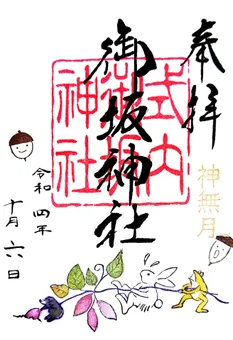 奉拝
神無月
式内
御坂神社
御坂神社
令和四年
十月六日